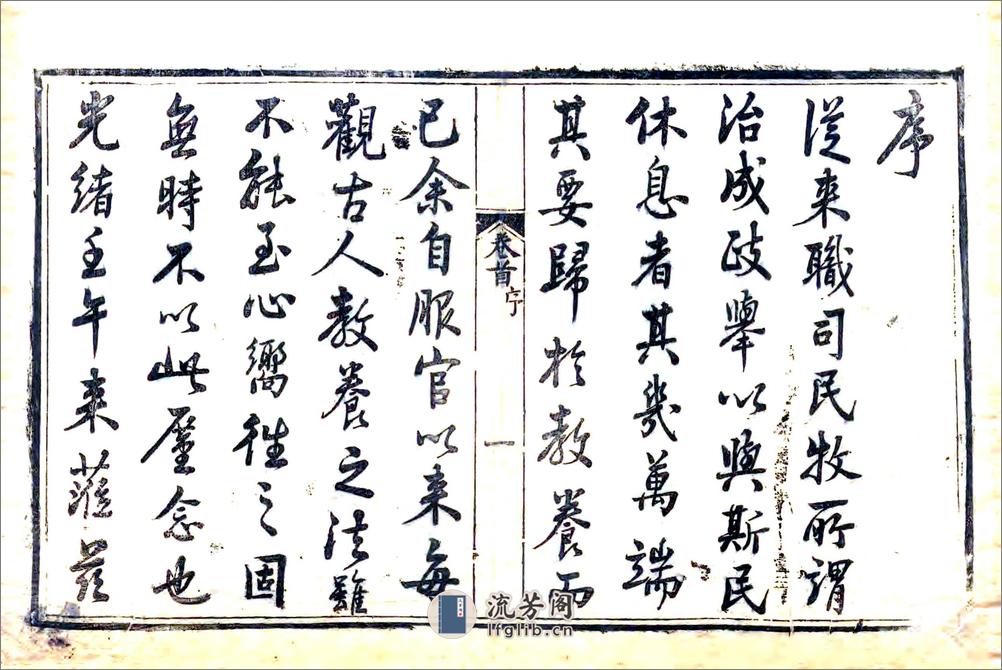 序
從来職司民牧所謂
治成政舉以與斯民
休息者其幾萬端
其要歸於教養而
卷首 序
一
已余自服官以来每
觀古人教養之法雖
不能至心嚮往之固
無時不以此廑念也
光緒壬午来蒞茲
流芳阁
lfglib.cn